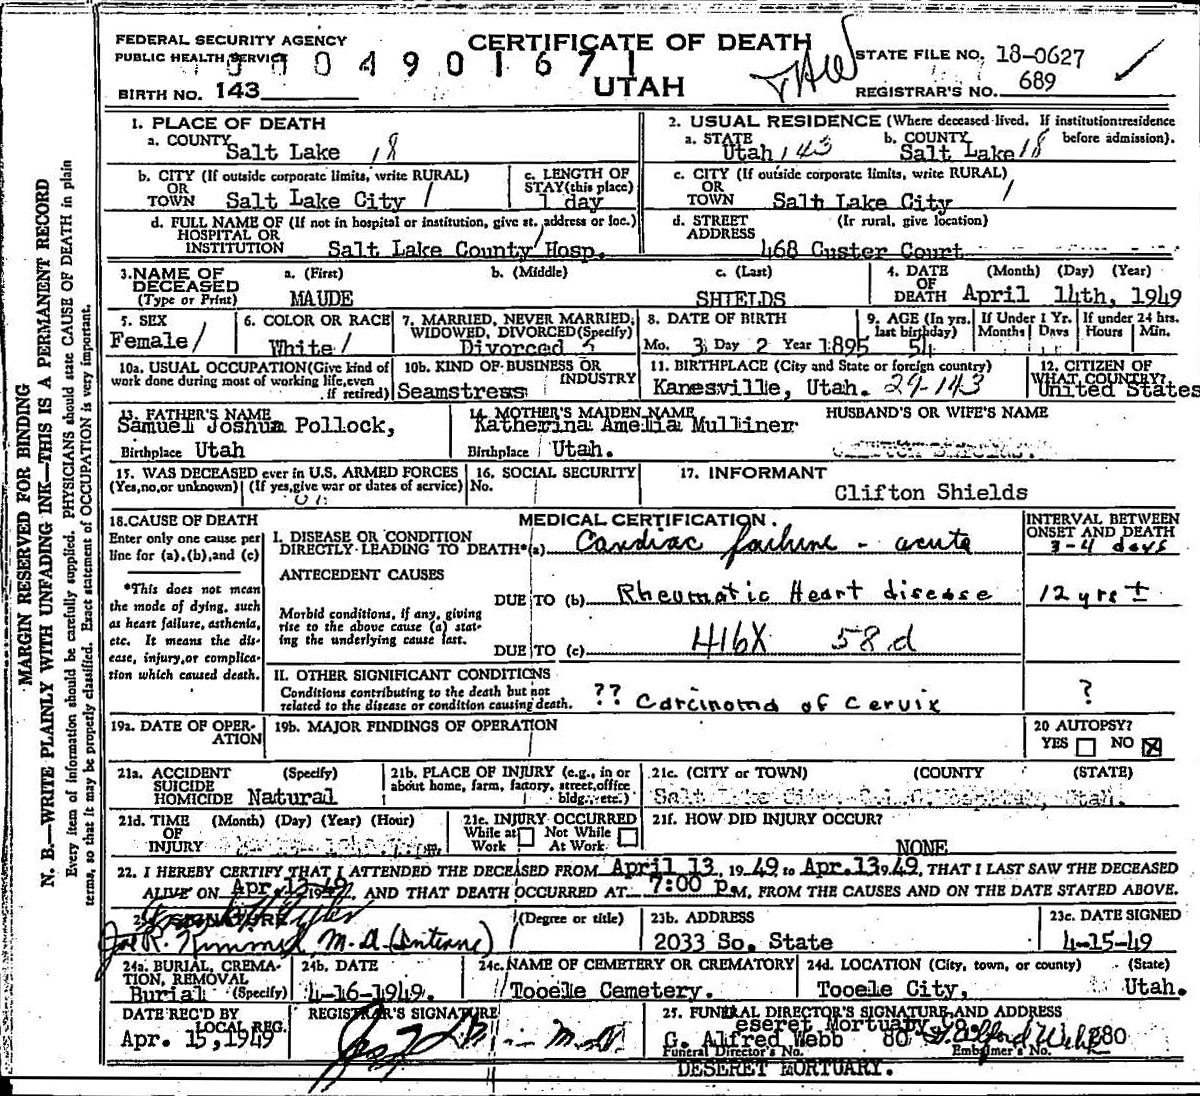 FEDERAL SECURITY AGENCY
PUBLIC HEALTH SERVICE
CERTIFICATE OF DEATH
UTAH
4 9 0 1 6 7 1
STATE FILE NO. 18-0627
BIRTH NO. 143
REGISTRAR'S NO. 689
1. PLACE OF DEATH
a. COUNTY Salt Lake 18
2. USUAL RESIDENCE (Where deceased lived. If institution: residence before admission).
a. STATE Utah 143 b. COUNTY Salt Lake 18
b. CITY (If outside corporate limits, write RURAL) OR TOWN Salt Lake City
c. LENGTH OF STAY (this place) 1 day
c. CITY (If outside corporate limits, write RURAL) OR TOWN Salt Lake City
d. FULL NAME OF (If not in hospital or institution, give st. address or loc.) HOSPITAL OR INSTITUTION Salt Lake County Hosp.
d. STREET ADDRESS (If rural, give location) 468 Custer Court
3. NAME OF DECEASED (Type or Print)
a. (First) MAUDE b. (Middle) c. (Last) SHIELDS
4. DATE OF DEATH (Month) (Day) (Year) April 14th, 1949
5. SEX Female
6. COLOR OR RACE White
7. MARRIED, NEVER MARRIED, WIDOWED, DIVORCED (Specify) Divorced
8. DATE OF BIRTH Mo. 3 Day 2 Year 1895
9. AGE (In yrs. last birthday) 54
If Under 1 Yr. Months Days
If under 24 hrs. Hours Min.
10a. USUAL OCCUPATION (Give kind of work done during most of working life, even if retired) Seamstress
10b. KIND OF BUSINESS OR INDUSTRY
11. BIRTHPLACE (City and State or foreign country) Kanesville, Utah. 29-143
12. CITIZEN OF WHAT COUNTRY? United States
13. FATHER'S NAME Samuel Joshua Pollock,
Birthplace Utah
14. MOTHER'S MAIDEN NAME Katherina Amelia Mulliner
Birthplace Utah.
HUSBAND'S OR WIFE'S NAME
15. WAS DECEASED ever in U.S. ARMED FORCES
(Yes, no, or unknown) (If yes, give war or dates of service)
16. SOCIAL SECURITY No.
17. INFORMANT
Clifton Shields
18. CAUSE OF DEATH
Enter only one cause per line for (a), (b), and (c)
*This does not mean the mode of dying, such as heart failure, asthenia, etc. It means the disease, injury, or complication which caused death.
MEDICAL CERTIFICATION.
INTERVAL BETWEEN ONSET AND DEATH
I. DISEASE OR CONDITION DIRECTLY LEADING TO DEATH* (a) Cardiac failure - acute 3-4 days
ANTECEDENT CAUSES
Morbid conditions, if any, giving rise to the above cause (a) stating the underlying cause last.
DUE TO (b) Rheumatic Heart disease 12 yrs ±
DUE TO (c) 416X 58 d
II. OTHER SIGNIFICANT CONDITIONS
Conditions contributing to the death but not related to the disease or condition causing death. ?? Carcinoma of Cervix ?
19a. DATE OF OPERATION
19b. MAJOR FINDINGS OF OPERATION
20 AUTOPSY?
YES NO X
21a. ACCIDENT SUICIDE HOMICIDE (Specify) Natural
21b. PLACE OF INJURY (e.g., in or about home, farm, factory, street, office bldg., etc.)
21c. (CITY or TOWN) (COUNTY) (STATE)
21d. TIME OF INJURY (Month) (Day) (Year) (Hour)
21e. INJURY OCCURRED While at Work Not While At Work
21f. HOW DID INJURY OCCUR?
NONE
22. I HEREBY CERTIFY THAT I ATTENDED THE DECEASED FROM April 13, 1949 to Apr. 13 1949, THAT I LAST SAW THE DECEASED
ALIVE ON Apr. 13 1949 AND THAT DEATH OCCURRED AT 7:00 p M, FROM THE CAUSES AND ON THE DATE STATED ABOVE.
SIGNATURE (Degree or title)
M.D. (Interne)
23b. ADDRESS 2033 So. State
23c. DATE SIGNED 4-15-49
24a. BURIAL, CREMATION, REMOVAL (Specify) Burial
24b. DATE 4-16-1949.
24c. NAME OF CEMETERY OR CREMATORY Tooele Cemetery.
24d. LOCATION (City, town, or county) (State) Tooele City, Utah.
DATE REC'D BY LOCAL REG. Apr. 15, 1949
REGISTRAR'S SIGNATURE
25. FUNERAL DIRECTOR'S SIGNATURE AND ADDRESS
eseret Mortuary
G. Alfred Webb 80 880
Funeral Director's No. Embalmer's No.
DESERET MORTUARY.
MARGIN RESERVED FOR BINDING
N. B.—WRITE PLAINLY WITH UNFADING INK—THIS IS A PERMANENT RECORD
Every item of information should be carefully supplied. PHYSICIANS should state CAUSE OF DEATH in plain
terms, so that it may be properly classified. Exact statement of OCCUPATION is very important.